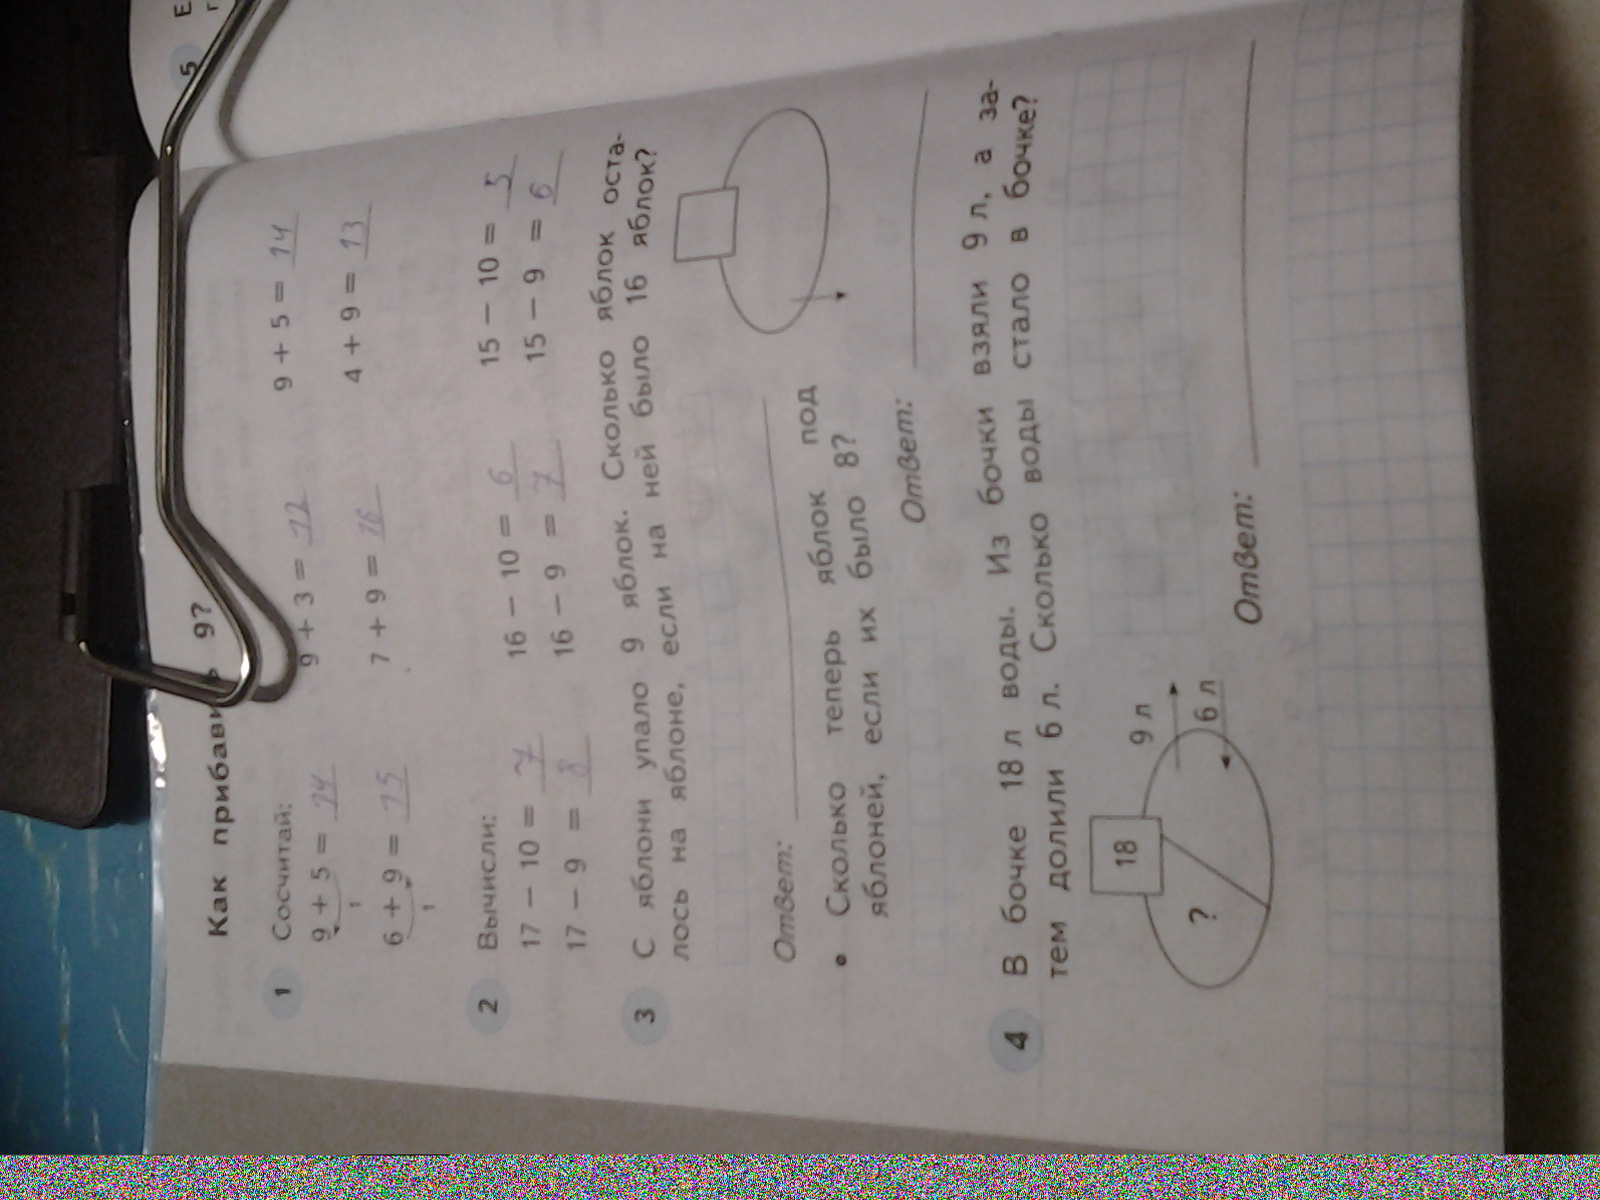 Как прибавить 9?
1 Сосчитай:
9 + 5 = 14 9 + 3 = 12 9 + 5 = 14
1
6 + 9 = 15 7 + 9 = 16 4 + 9 = 13
1
2 Вычисли:
17 − 10 = 7 16 − 10 = 6 15 − 10 = 5
17 − 9 = 8 16 − 9 = 7 15 − 9 = 6
3 С яблони упало 9 яблок. Сколько яблок оста-
лось на яблоне, если на ней было 16 яблок?
Ответ:
• Сколько теперь яблок под
яблоней, если их было 8?
Ответ:
4 В бочке 18 л воды. Из бочки взяли 9 л, а за-
тем долили 6 л. Сколько воды стало в бочке?
18
9 л
?
6 л
Ответ:
5 Е